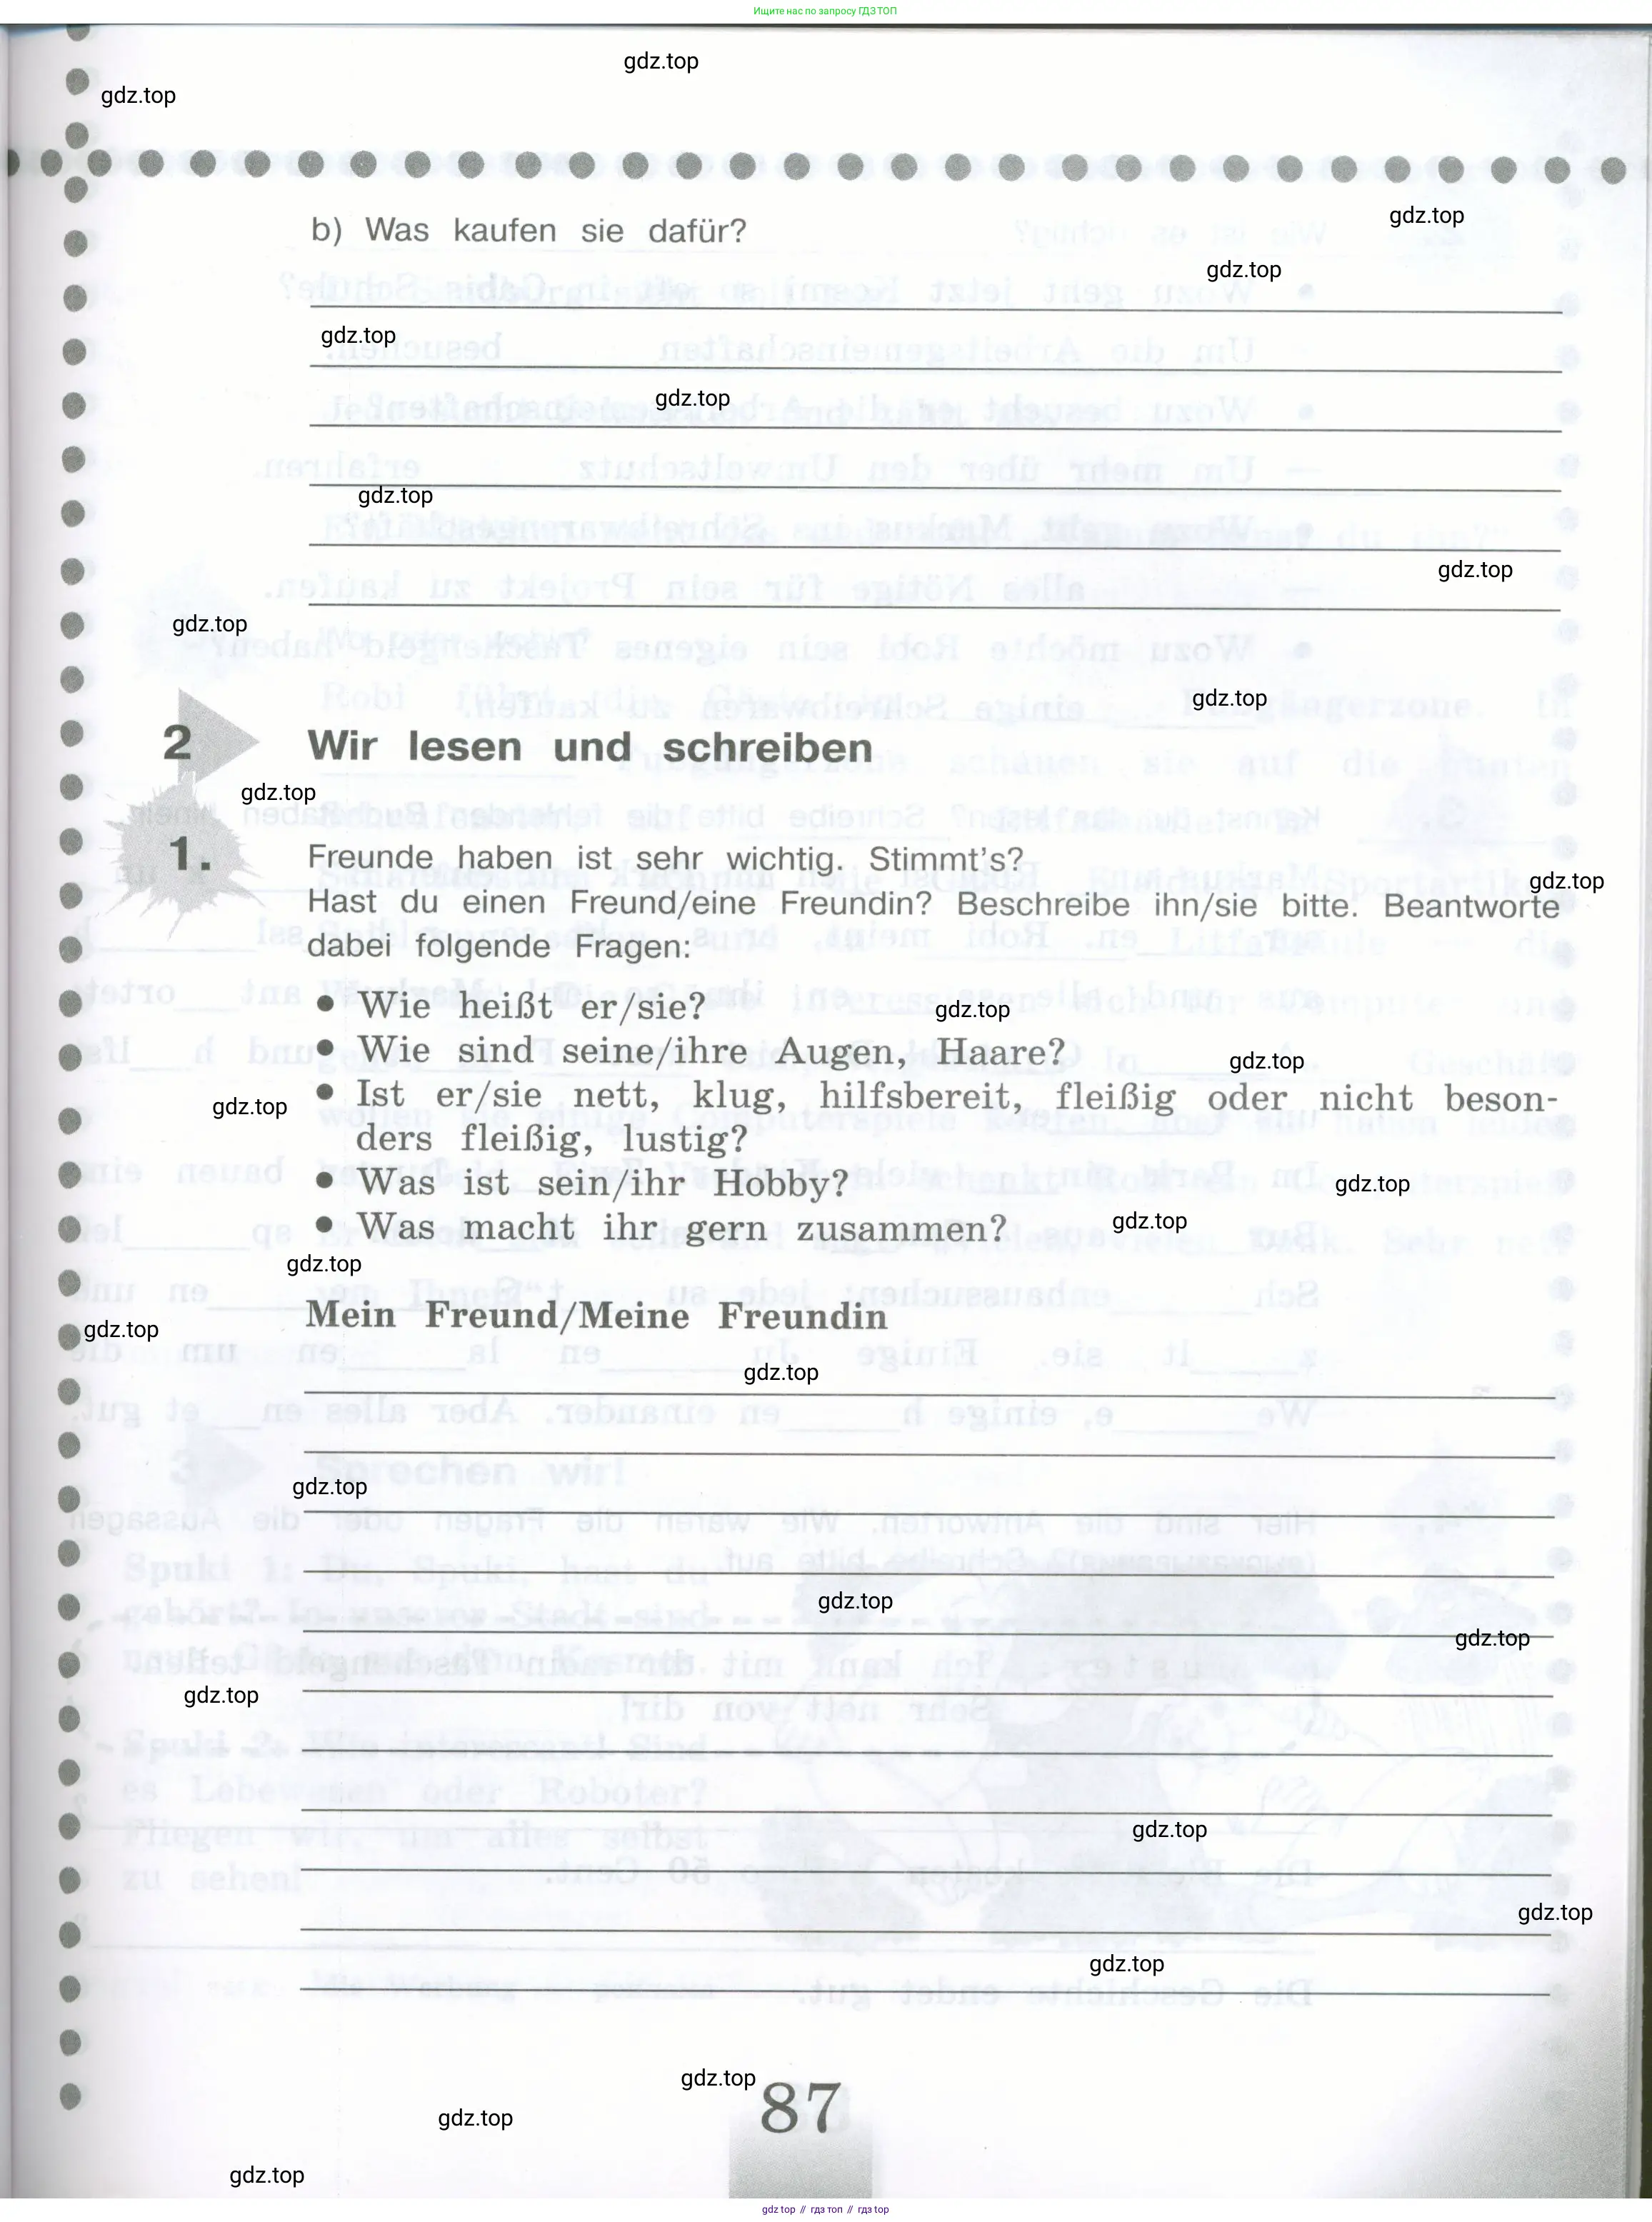 Ищите нас по запросу ГДЗ ТОП
gdz.top
gdz.top
gdz.top
b) Was kaufen sie dafür?
gdz.top
gdz.top
gdz.top
gdz.top
gdz.top
gdz.top
gdz.top
2 Wir lesen und schreiben
gdz.top
1. Freunde haben ist sehr wichtig. Stimmt's?
gdz.top
Hast du einen Freund/eine Freundin? Beschreibe ihn/sie bitte. Beantworte
dabei folgende Fragen:
• Wie heißt er/sie?
gdz.top
• Wie sind seine/ihre Augen, Haare?
gdz.top
• Ist er/sie nett, klug, hilfsbereit, fleißig oder nicht beson-
gdz.top
ders fleißig, lustig?
• Was ist sein/ihr Hobby?
gdz.top
• Was macht ihr gern zusammen?
gdz.top
gdz.top
Mein Freund/Meine Freundin
gdz.top
gdz.top
gdz.top
gdz.top
gdz.top
gdz.top
gdz.top
gdz.top
gdz.top
gdz.top
87
gdz.top
gdz.top
gdz.top // гдз топ // гдз top